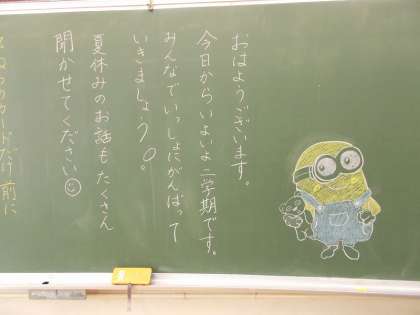 おはようございます。
今日からいよいよ二学期です。
みんなでいっしょにがんばって
いきましょう。
夏休みのお話もたくさん
開かせてください